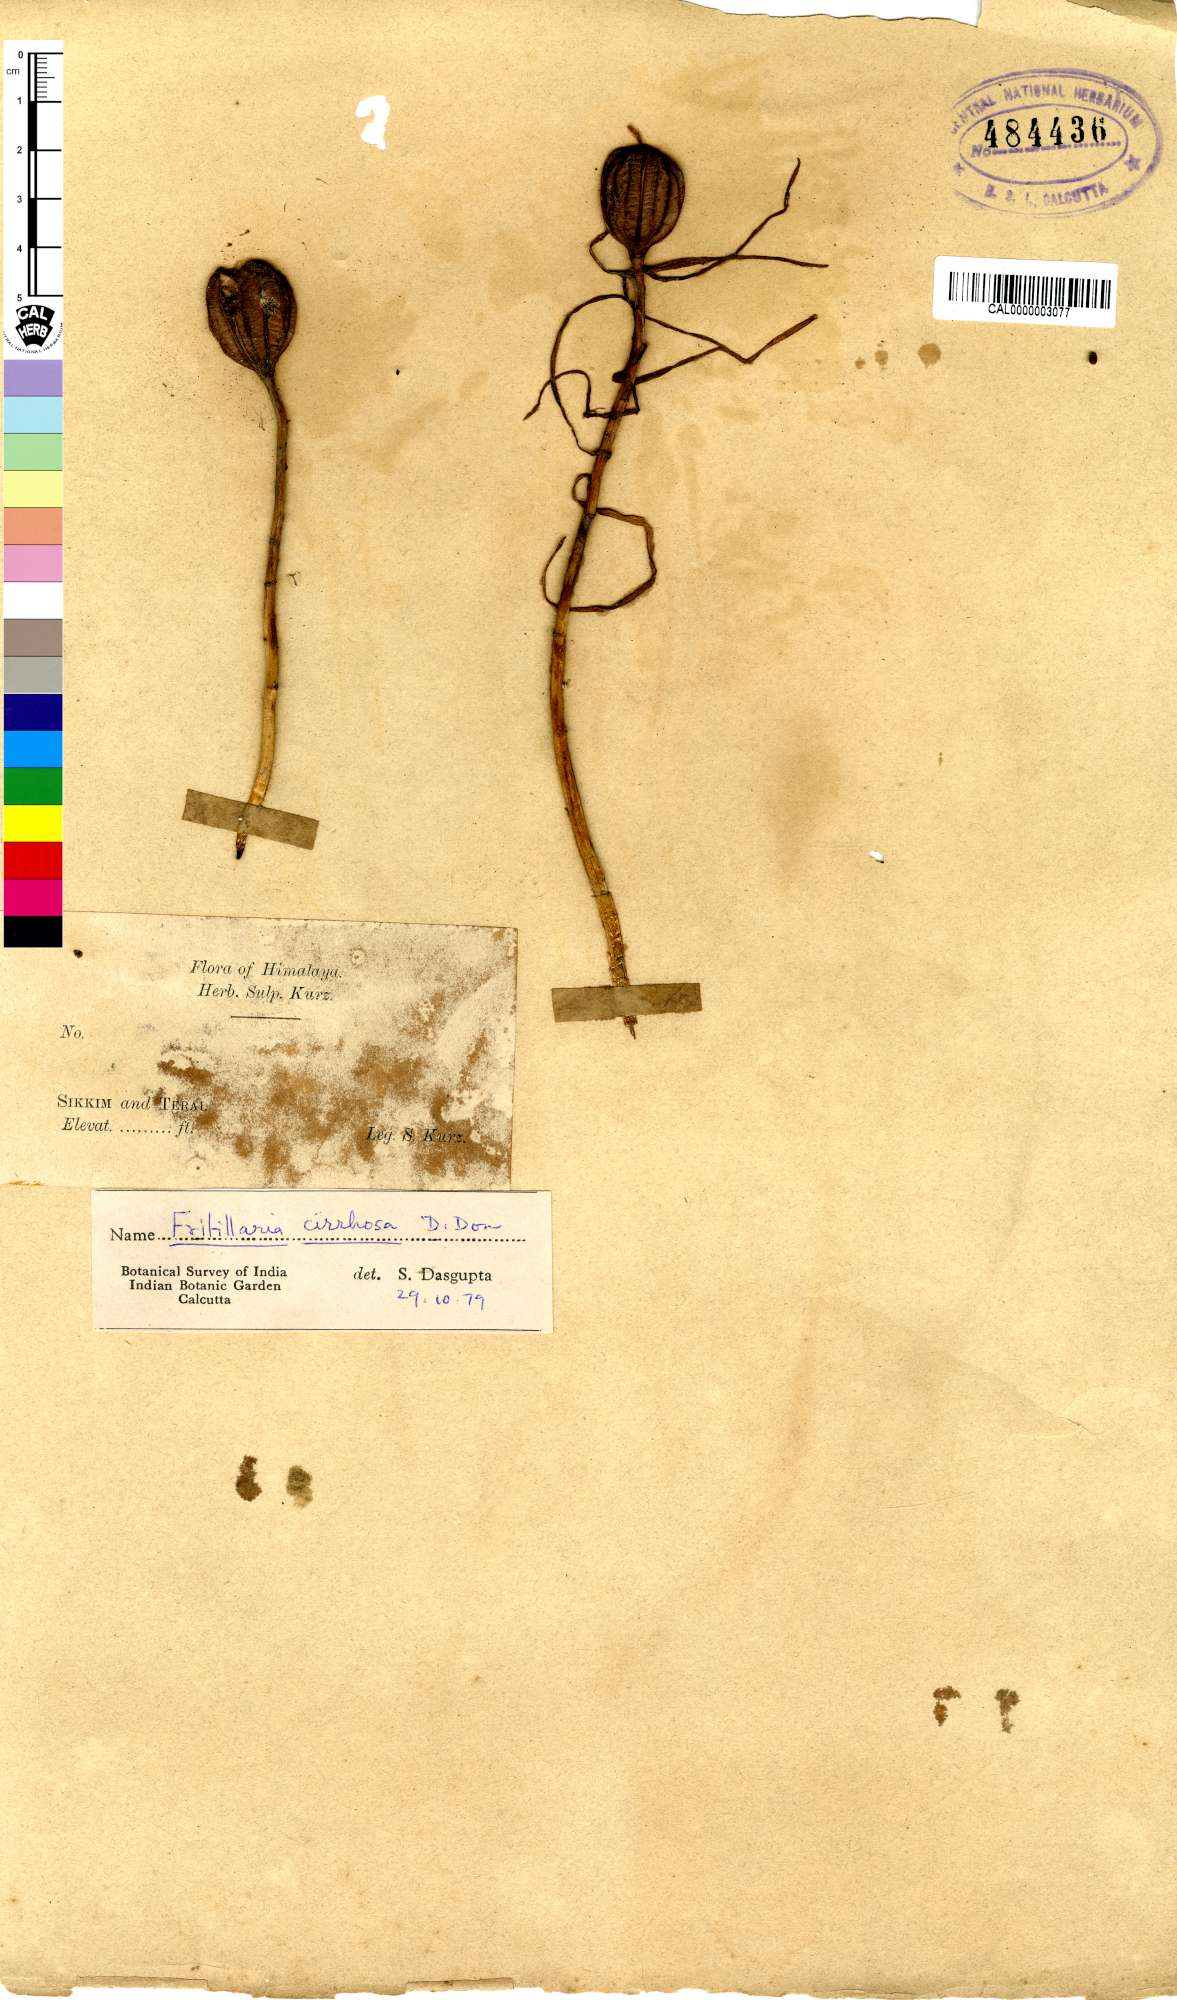 0
cm
1
2
3
4
5
CAL
HERB
CENTRAL NATIONAL HERBARIUM
No. 484436
B. S. I., CALCUTTA
CAL0000003077
Flora of Himalaya.
Herb. Sulp. Kurz.
No.
SIKKIM and TERAI
Elevat. ......... ft.
Leg. S. Kurz.
Name Fritillaria cirrhosa D. Don
Botanical Survey of India
Indian Botanic Garden
Calcutta
det. S. Dasgupta
29.10.79